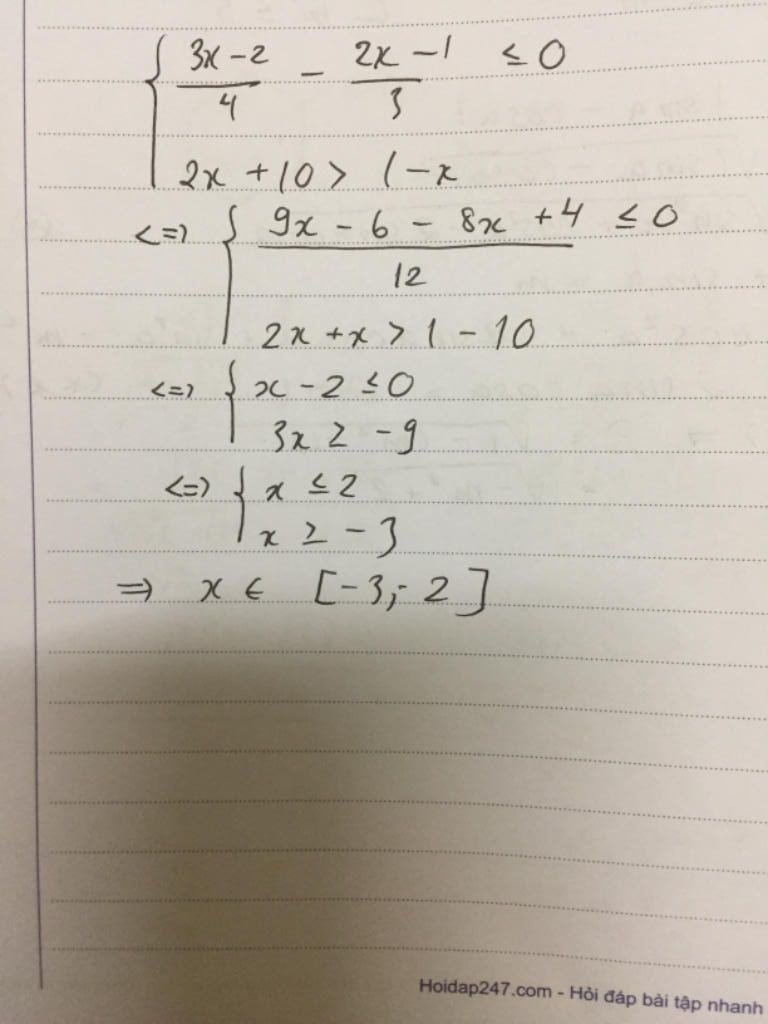 3x - 2 / 4 - 2x - 1 / 3 ≤ 0
2x + 10 > 1 - x
<=> 9x - 6 - 8x + 4 / 12 ≤ 0
2x + x > 1 - 10
<=> x - 2 ≤ 0
3x ≥ -9
<=> x ≤ 2
x ≥ -3
=> x ∈ [-3; -2]
Hoidap247.com - Hỏi đáp bài tập nhanh